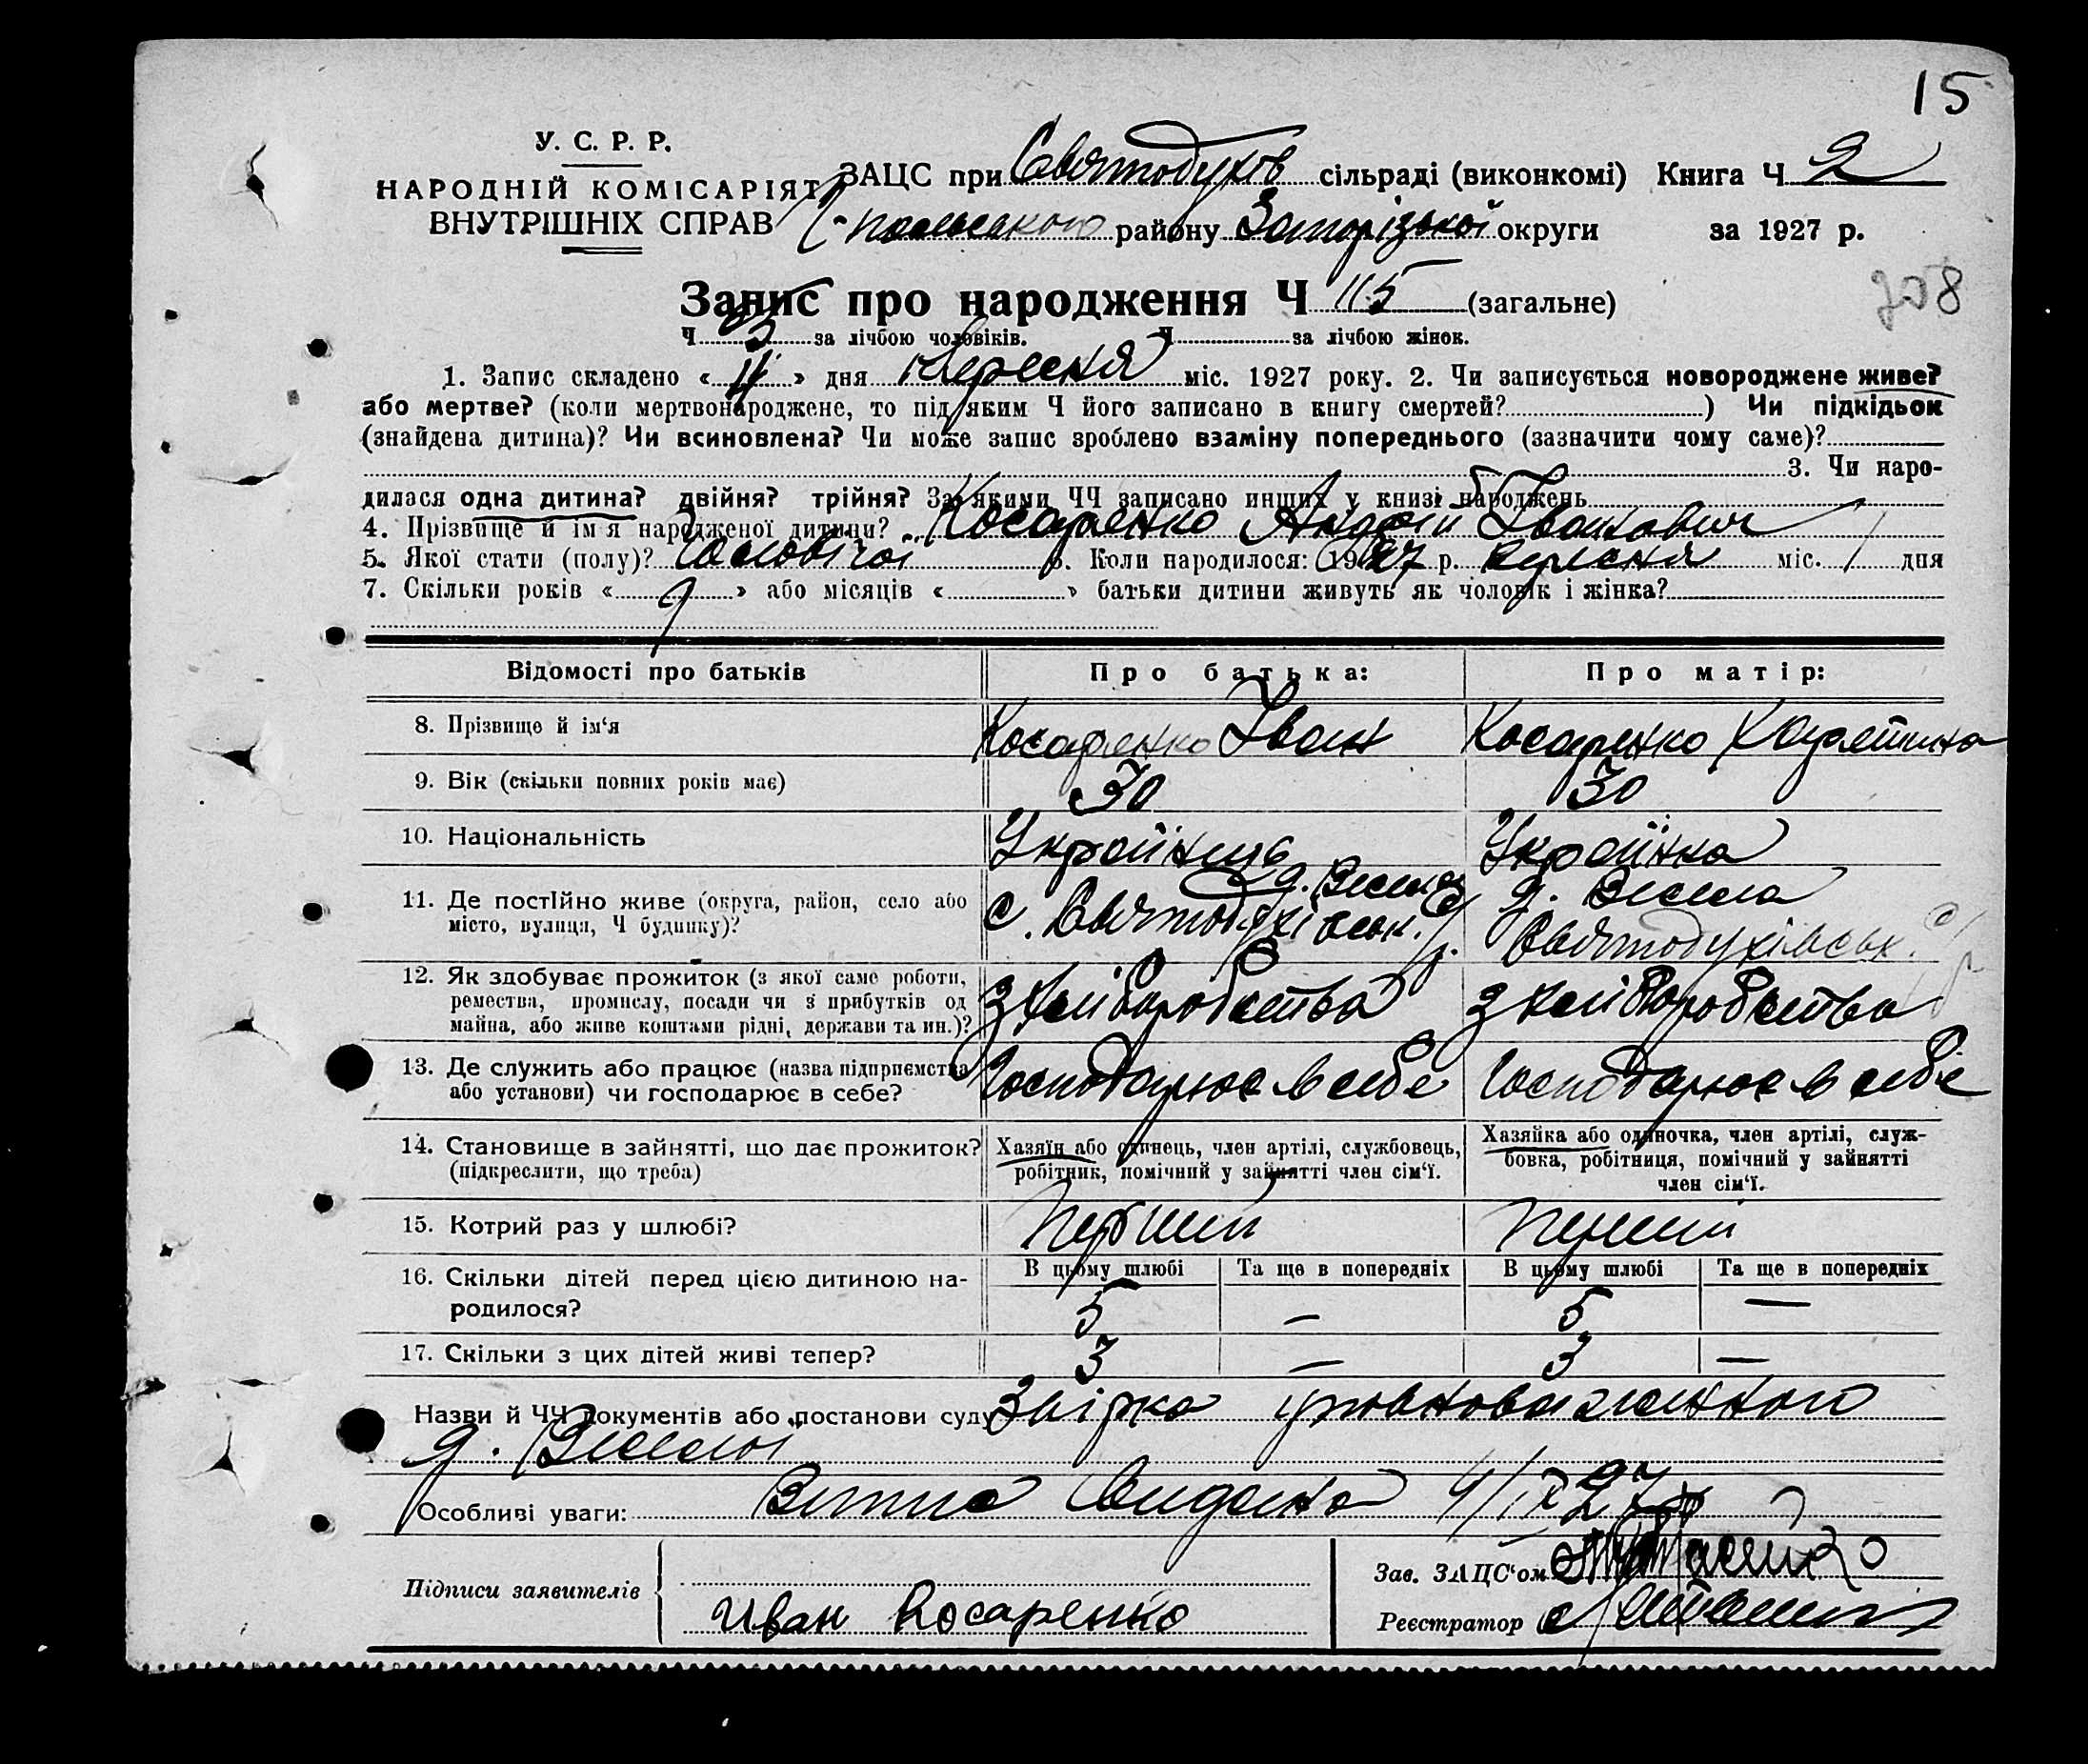 15
У. С. Р. Р.
НАРОДНІЙ КОМІСАРІЯТ
ВНУТРІШНІХ СПРАВ
ЗАЦС при Святодухов сільраді (виконкомі) Книга Ч 2
району Запорізької округи за 1927 р.
Запис про народження Ч 115 (загальне)
708
Ч за лічбою чоловіків. Ч за лічбою жінок.
1. Запис складено « 4 » дня Вересня міс. 1927 року. 2. Чи записується новороджене живе?
або мертве? (коли мертвонароджене, то під яким Ч його записано в книгу смертей? ) Чи підкідьок
(знайдена дитина)? Чи всиновлена? Чи може запис зроблено взаміну попереднього (зазначити чому саме)?
3. Чи наро-
дилася одна дитина? двійня? трійня? За якими ЧЧ записано инших у книзі народжень
4. Прізвище й ім'я народженої дитини? Косаренко Андрій Іванович
5. Якої стати (полу)? Чоловічої 6. Коли народилося: 1927 р. вересня міс. 1 дня
7. Скільки років « 9 » або місяців « » батьки дитини живуть як чоловік і жінка?
Відомості про батьків Про батька: Про матір:
8. Прізвище й ім'я Косаренко Іван Косаренко
9. Вік (скільки повних років має) 30 30
10. Національність Українець Українка
11. Де постійно живе (округа, район, село або
місто, вулиця, Ч будинку)?
д. Весела
с. Святодухівськ. с/р.
д. Весела
Святодухівськ. с/р
12. Як здобуває прожиток (з якої саме роботи,
ремества, промислу, посади чи з прибутків од
майна, або живе коштами рідні, держави та ин.)?
З хліборобства З хліборобства
13. Де служить або працює (назва підприємства
або установи) чи господарює в себе?
Господарює в себе Господарює в себе
14. Становище в зайнятті, що дає прожиток?
(підкреслити, що треба)
Хазяїн або одинець, член артілі, службовець,
робітник, помічний у зайнятті член сім'ї.
Хазяйка або одиночка, член артілі, служ-
бовка, робітниця, помічний у зайнятті
член сім'ї.
15. Котрий раз у шлюбі? Первий Перший
16. Скільки дітей перед цією дитиною на-
родилося?
В цьому шлюбі Та ще в попередніх В цьому шлюбі Та ще в попередніх
5 — 5 —
17. Скільки з цих дітей живі тепер? 3 — 3 —
Назви й ЧЧ документів або постанови суду Звірка уповноваженного
д. Веселої
Особливі уваги: Витяг видано 4/IX 27
Підписи заявителів
Иван Косаренко
Зав. ЗАЦС'ом
Реєстратор